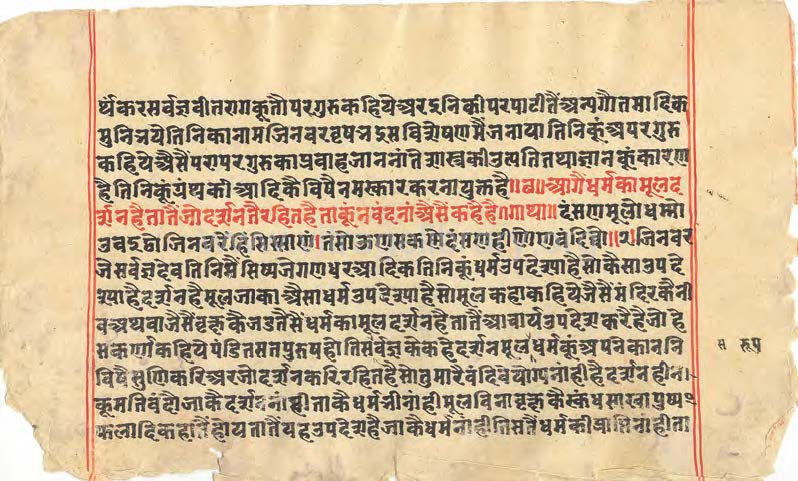 र्थंकरसर्वज्ञवीतरागकूतौपरगुरुकहियेअरइनिकीपरपाटीतैंअन्यगौतमादिक
मुनिभयेतिनिकानामजिनवरवृषभइसविशेषणमैंजनायातिनिकूंअपरगुरु
कहियेऐसैंपरापरगुरुकाप्रवाहजाननांतेशास्त्रकीउत्पत्तितथाज्ञानकूंकारण
हैतिनिकूंग्रंथकीआदिकैविषैनमस्कारकरनायुक्तहै॥छ॥आगैंधर्मकामूलद
र्शनहैतातैंजोदर्शनतैंरहितहैताकूंनवंदनांऐसैंकहैहै॥गाथा॥दंसणमूलोधम्मो
उवइट्ठोजिनवरेहिंसिस्साणं।तंसोऊणसकण्णेदंसणहीणोणवंदिव्वो॥२॥जिनवर
जेसर्वज्ञदेवतिनिनैंसिष्यजेगणधरआदिकतिनिकूंधर्मउपदेश्याहैसोकैसाउपदे
श्याहैदर्शनहैमूलजाकाऐसाधर्मउपदेश्याहैसोमूलकहाकहियेजैसैंमंदिरकैनी
वअथवाजैसैंवृक्षकैजडतैसैंधर्मकामूलदर्शनहैतातैंआचार्यउपदेशकरैहैजोहे
सकर्णकहियेपंडितसतपुरुषहोतिसर्वज्ञकेकहेदर्शनमूलधर्मकूंअपनेकाननि
विषैसुणिकरिअरजोदर्शनकरिरहितहैसोतुमारैवंदिवेयोग्यनांहीहैदर्शनहीन
कूमतिवंदौजाकैदर्शननांहीताकैधर्मभीनांहीमूलविनावृक्षकैस्कंधसाखापुष्प
फलादिककहातैंहोयतातैंयहउपदेशहैजाकैधर्मनांहीतिसतैंधर्मकीप्राप्तिनांहीता